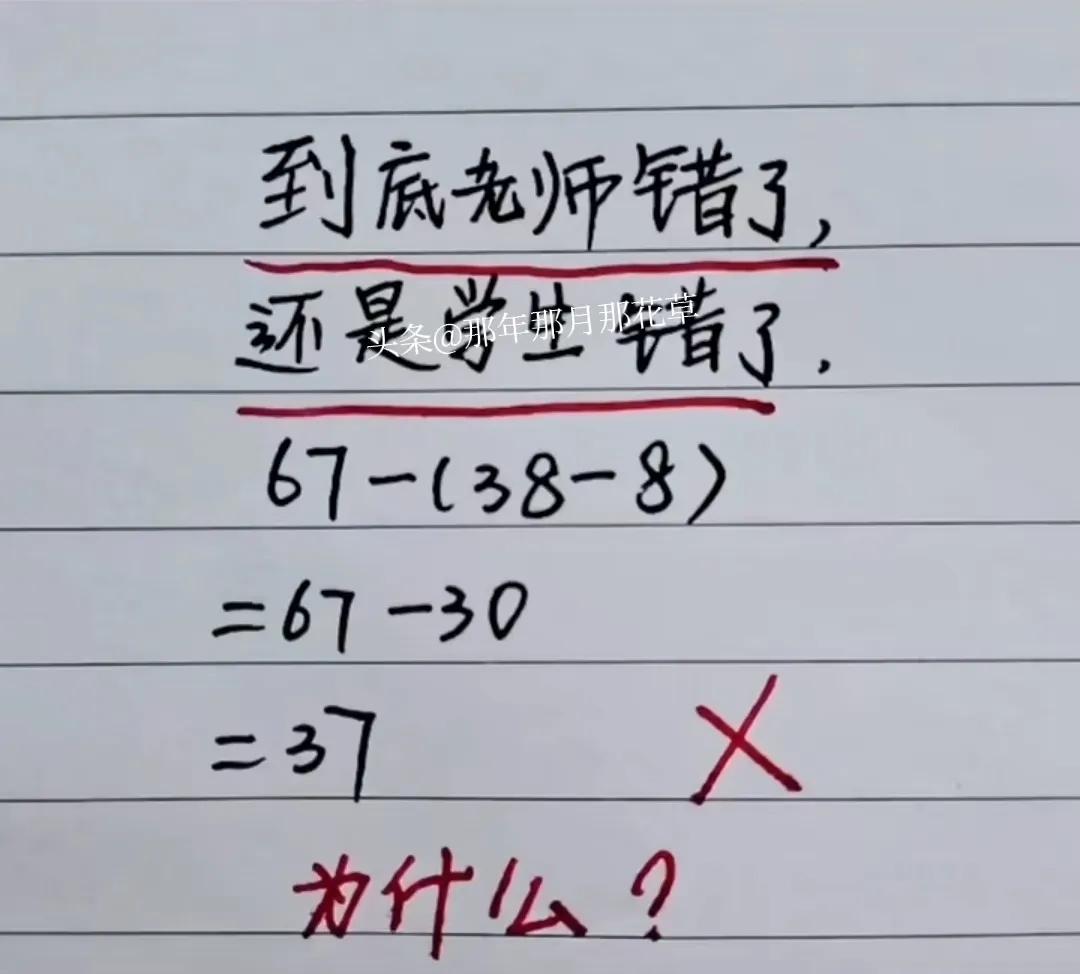 到底老师错了,
还是学生错了.
头条@那年那月那花草
67-(38-8)
=67-30
=37
×
为什么?